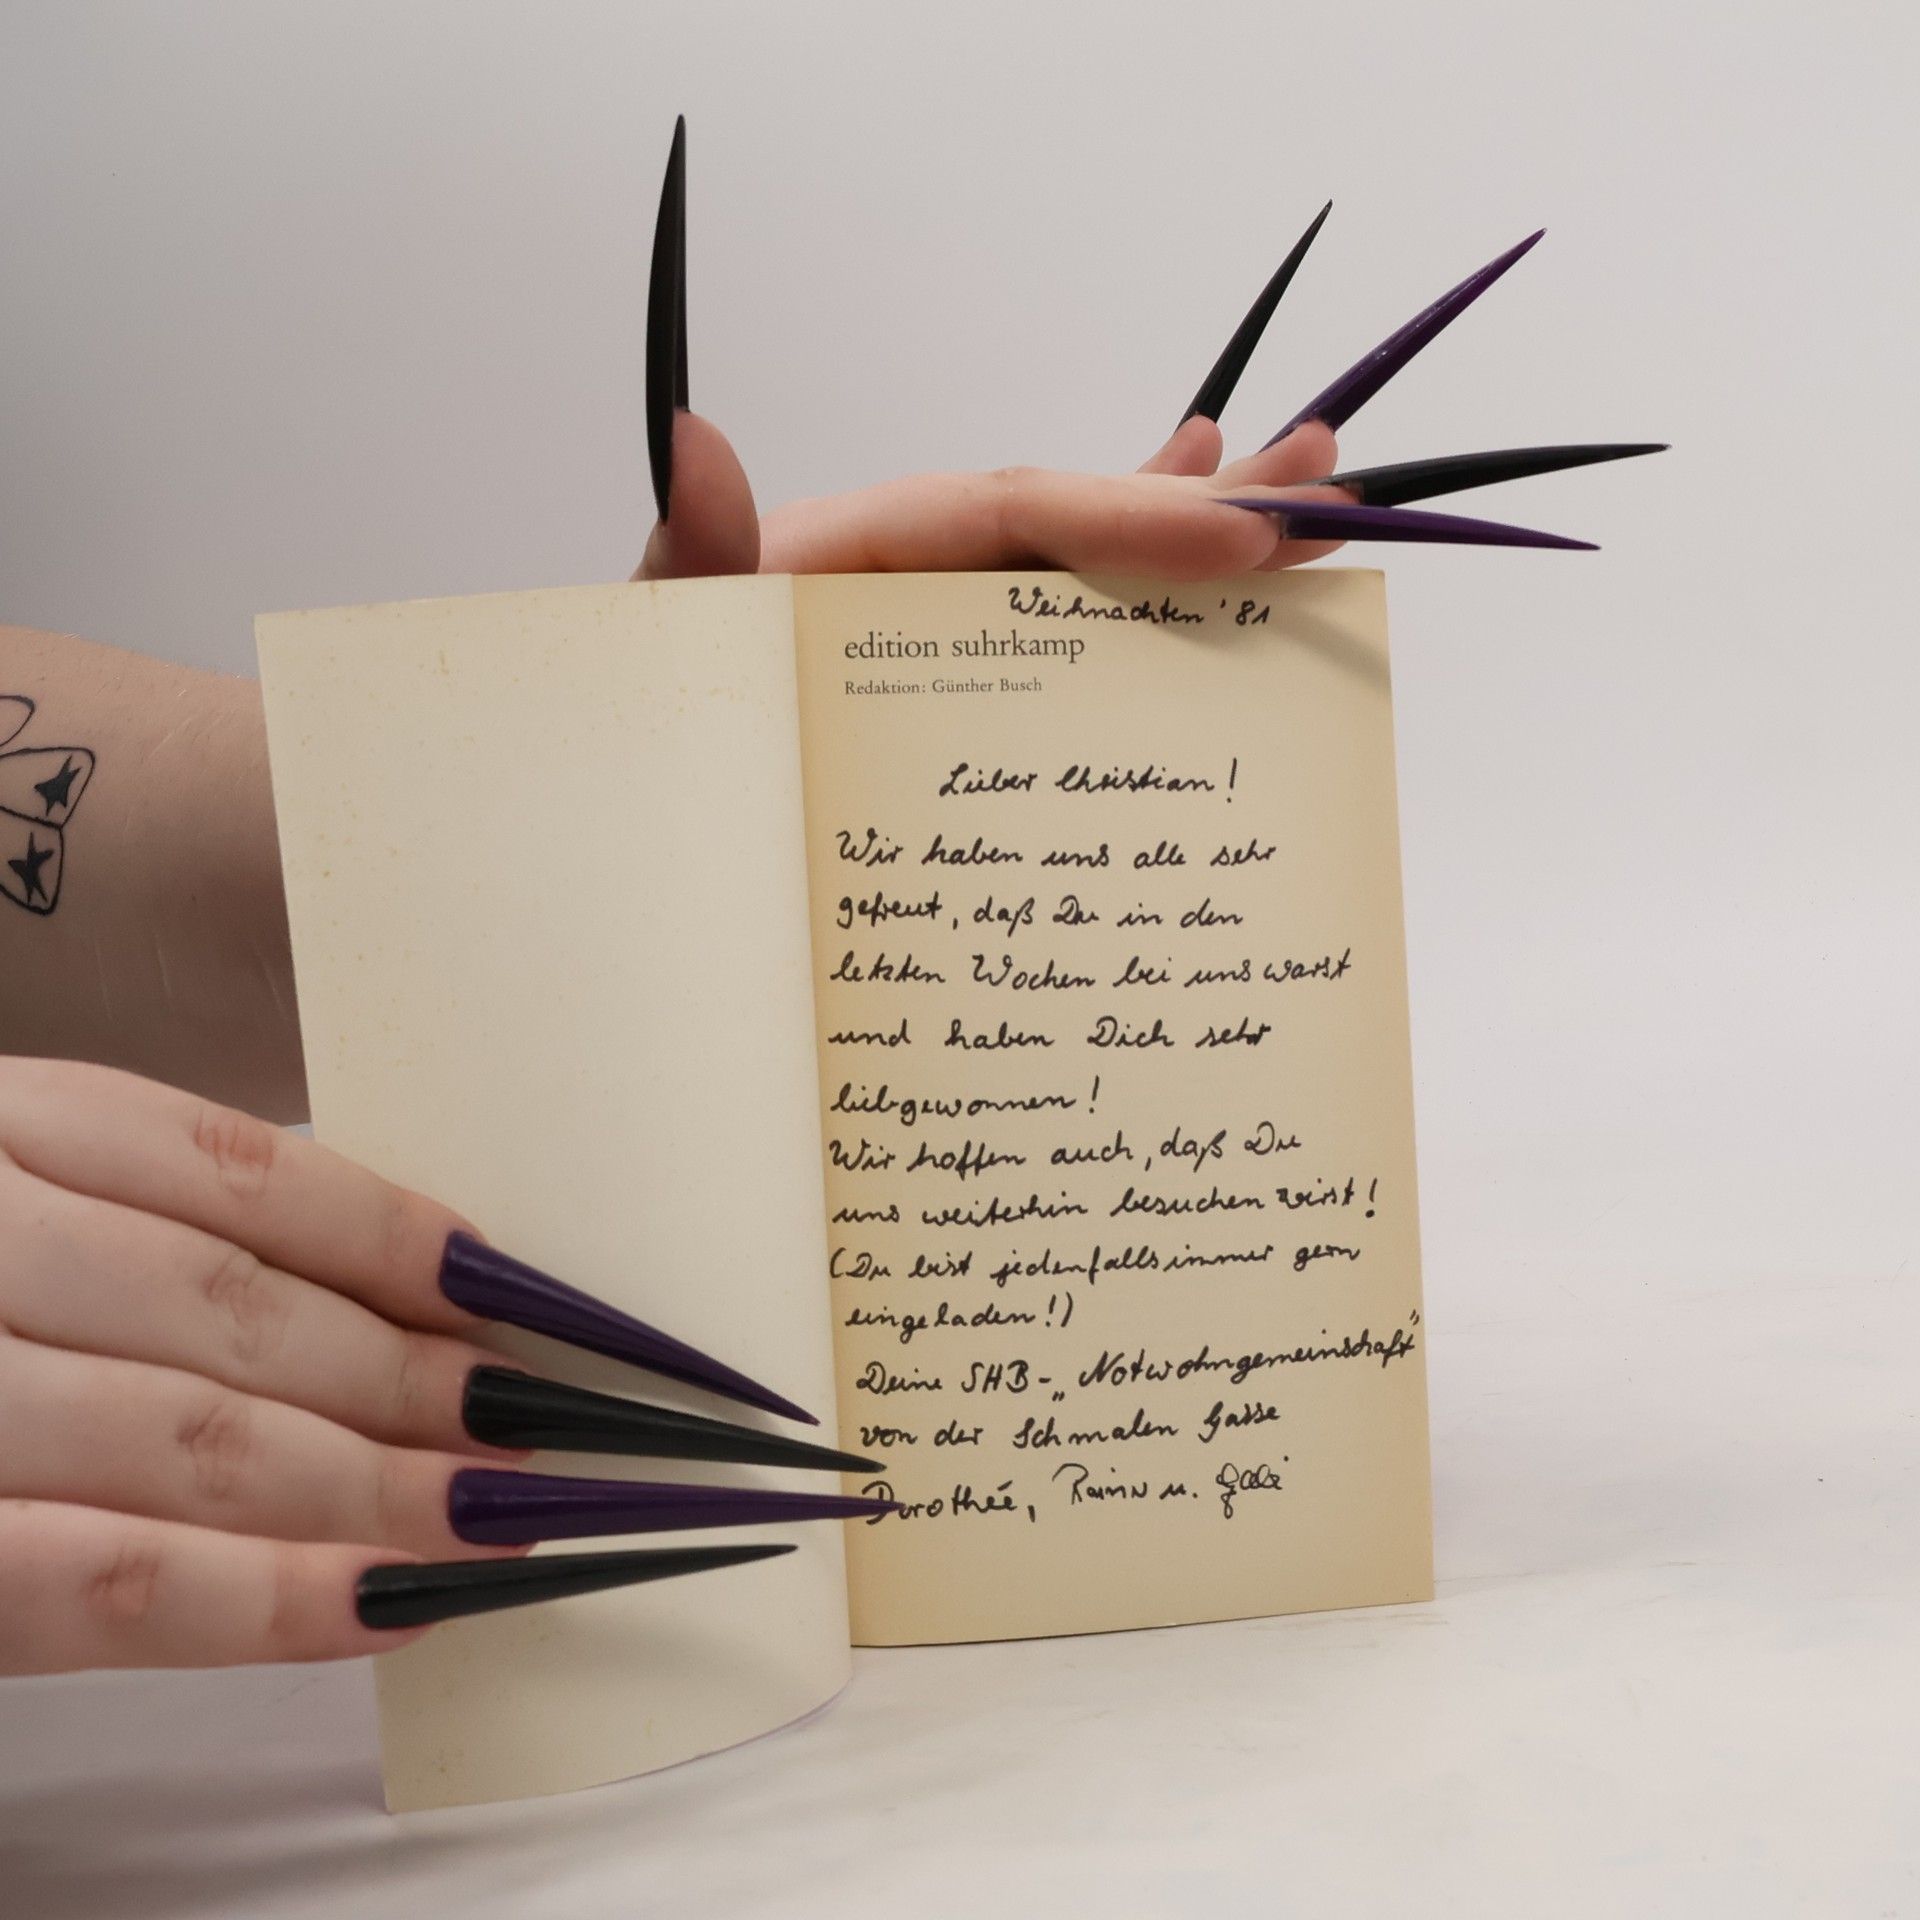 Weihnachten '81
edition suhrkamp
Redaktion: Günther Busch
Lieber Christian!
Wir haben uns alle sehr
gefreut, daß Du in den
letzten Wochen bei uns warst
und haben Dich sehr
liebgewonnen!
Wir hoffen auch, daß Du
uns weiterhin besuchen wirst!
(Du bist jedenfalls immer gern
eingeladen!)
Deine SHB-„Notwohngemeinschaft"
von der Schmalen Gasse
Dorothée, u. Gabi